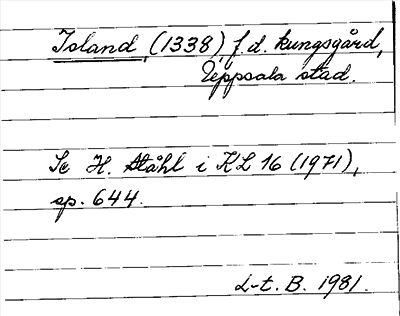 Island, (1338) f.d. kungsgård,
Uppsala stad.
Se H. Ståhl i KL 16 (1971),
sp. 644.
L-t. B. 1981.